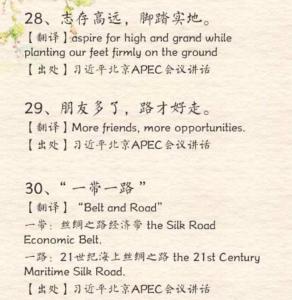 28、志存高远，脚踏实地。
【翻译】aspire for high and grand while
planting our feet firmly on the ground
【出处】习近平北京APEC会议讲话
29、朋友多了，路才好走。
【翻译】More friends, more opportunities.
【出处】习近平北京APEC会议讲话
30、“一带一路”
【翻译】“Belt and Road”
一带：丝绸之路经济带 the Silk Road
Economic Belt,
一路：21世纪海上丝绸之路 the 21st Century
Maritime Silk Road.
【出处】习近平北京APEC会议讲话